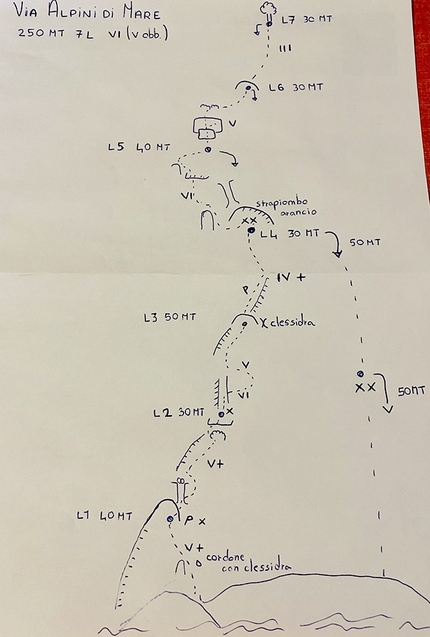 VIA ALPINI DI MARE
250 MT 7L VI (V obb.)
L7 30 MT
III
L6 30 MT
V
L5 40 MT
VI
strapiombo
arancio
XX
L4 30 MT
50 MT
P IV+
L3 50 MT
X clessidra
V
VI
XX
50MT
L2 30 MT X
V+
L1 40 MT
P X
V+
cordone
con clessidra